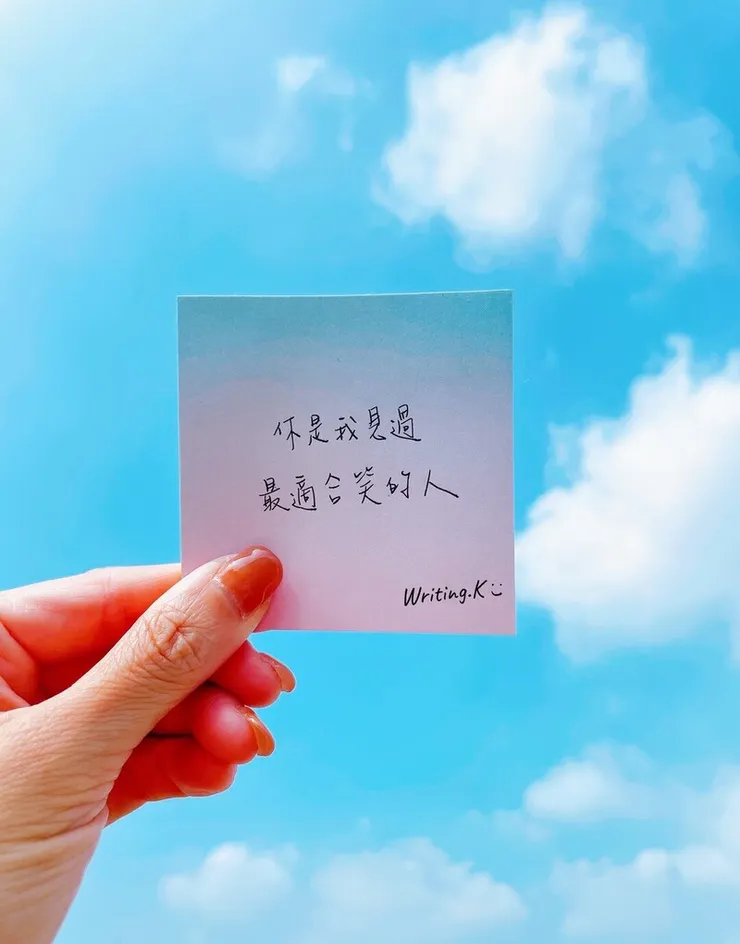 你是我見過
最適合笑的人
Writing.K